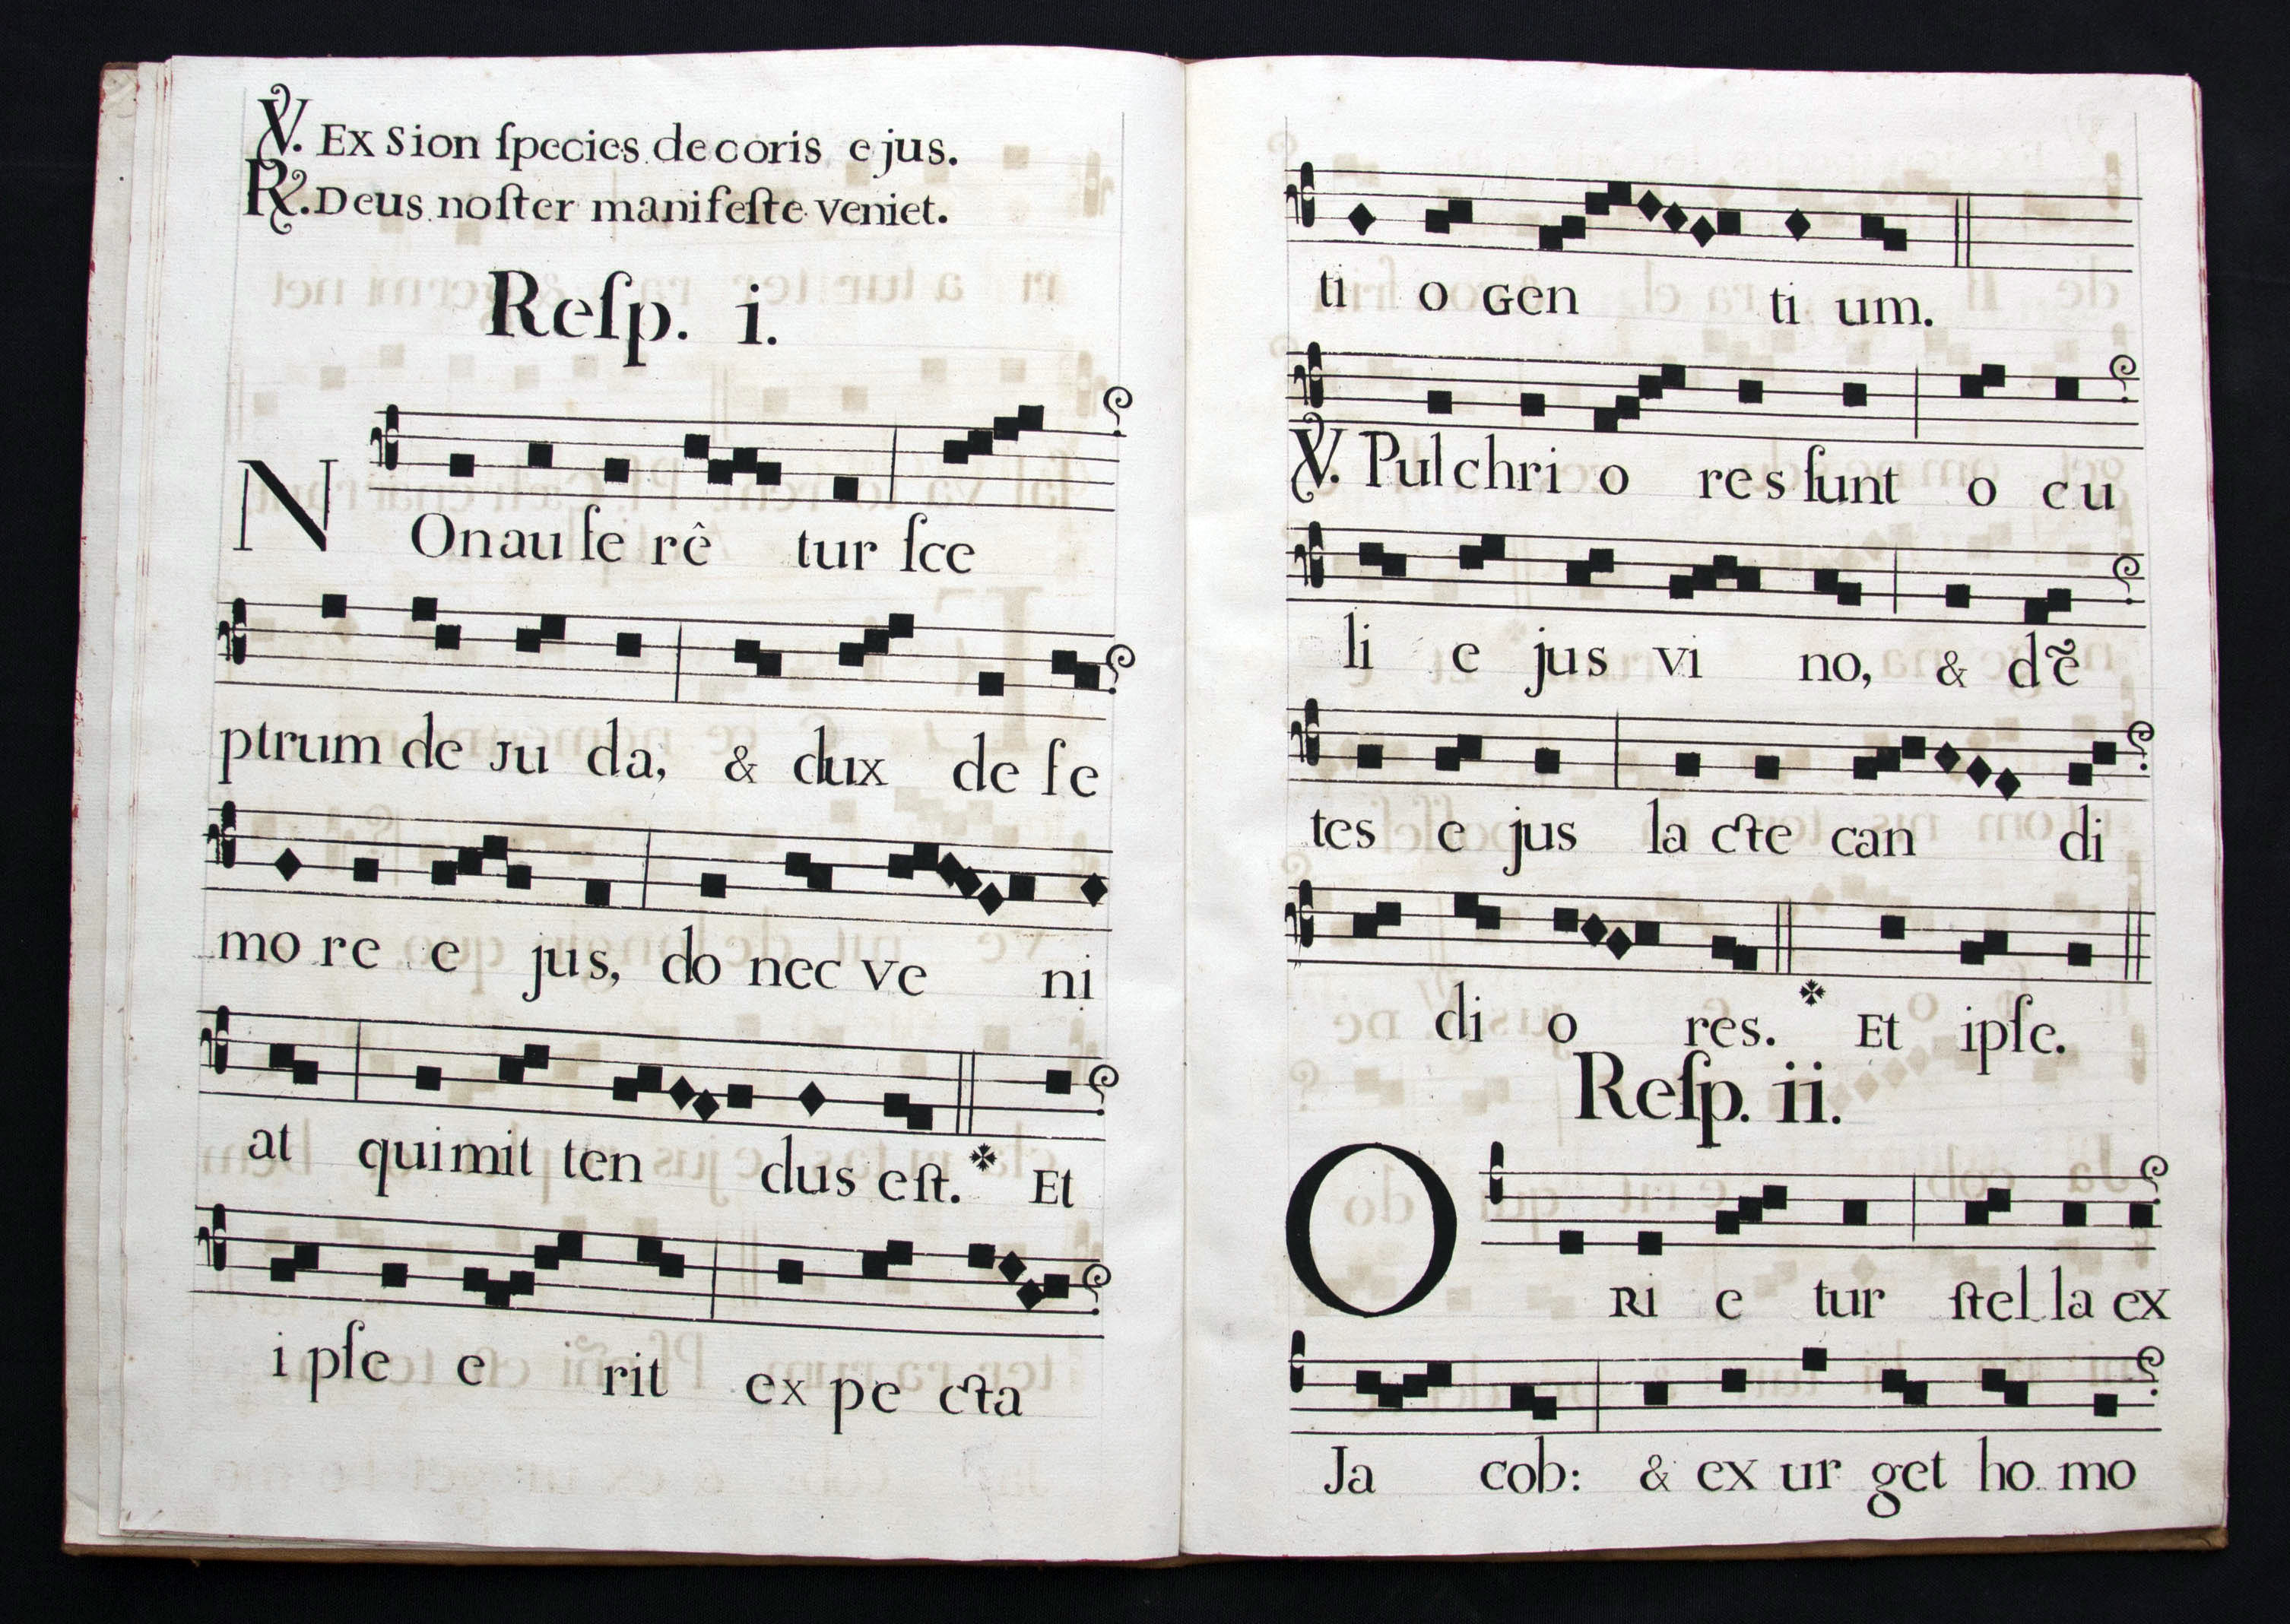 ℣. Ex Sion ſpecies decoris ejus.
℟. Deus noſter manifeſte veniet.
Reſp. i.
N On au fe rê tur ſce
ptrum de Ju da, & dux de fe
mo re e jus, do nec ve ni
at qui mit ten dus eſt. * Et
i pſe e rit ex pe cta
ti o Gen ti um.
℣. Pul chri o res ſunt o cu
li e jus vi no, & dẽ
tes e jus la cte can di
di o res. * Et ipſe.
Reſp. ii.
O RI e tur ſtel la ex
Ja cob: & ex ur get ho mo